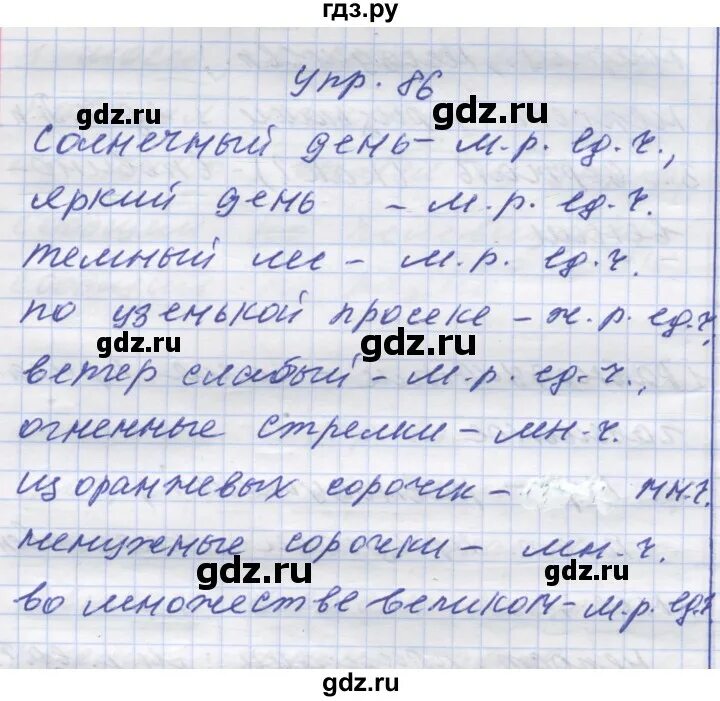 гдз.ру
Упр. 86
gdz.ru gdz.ru
солнечный день - м.р. ед.ч.,
яркий день - м.р. ед.ч.
gdz.ru gdz.ru
темный лес - м.р. ед.ч.
по узенькой просеке - ж.р. ед.ч,
gdz.ru gdz.ru
ветер слабый - м.р. ед.ч.,
огненные стрелки - мн.ч.
gdz.ru gdz.ru
из оранжевых сорочек - мн.ч.
ненужные сорочки - мн.ч.
gdz.ru gdz.ru
во множестве великом - м.р. ед.ч
gdz.ru